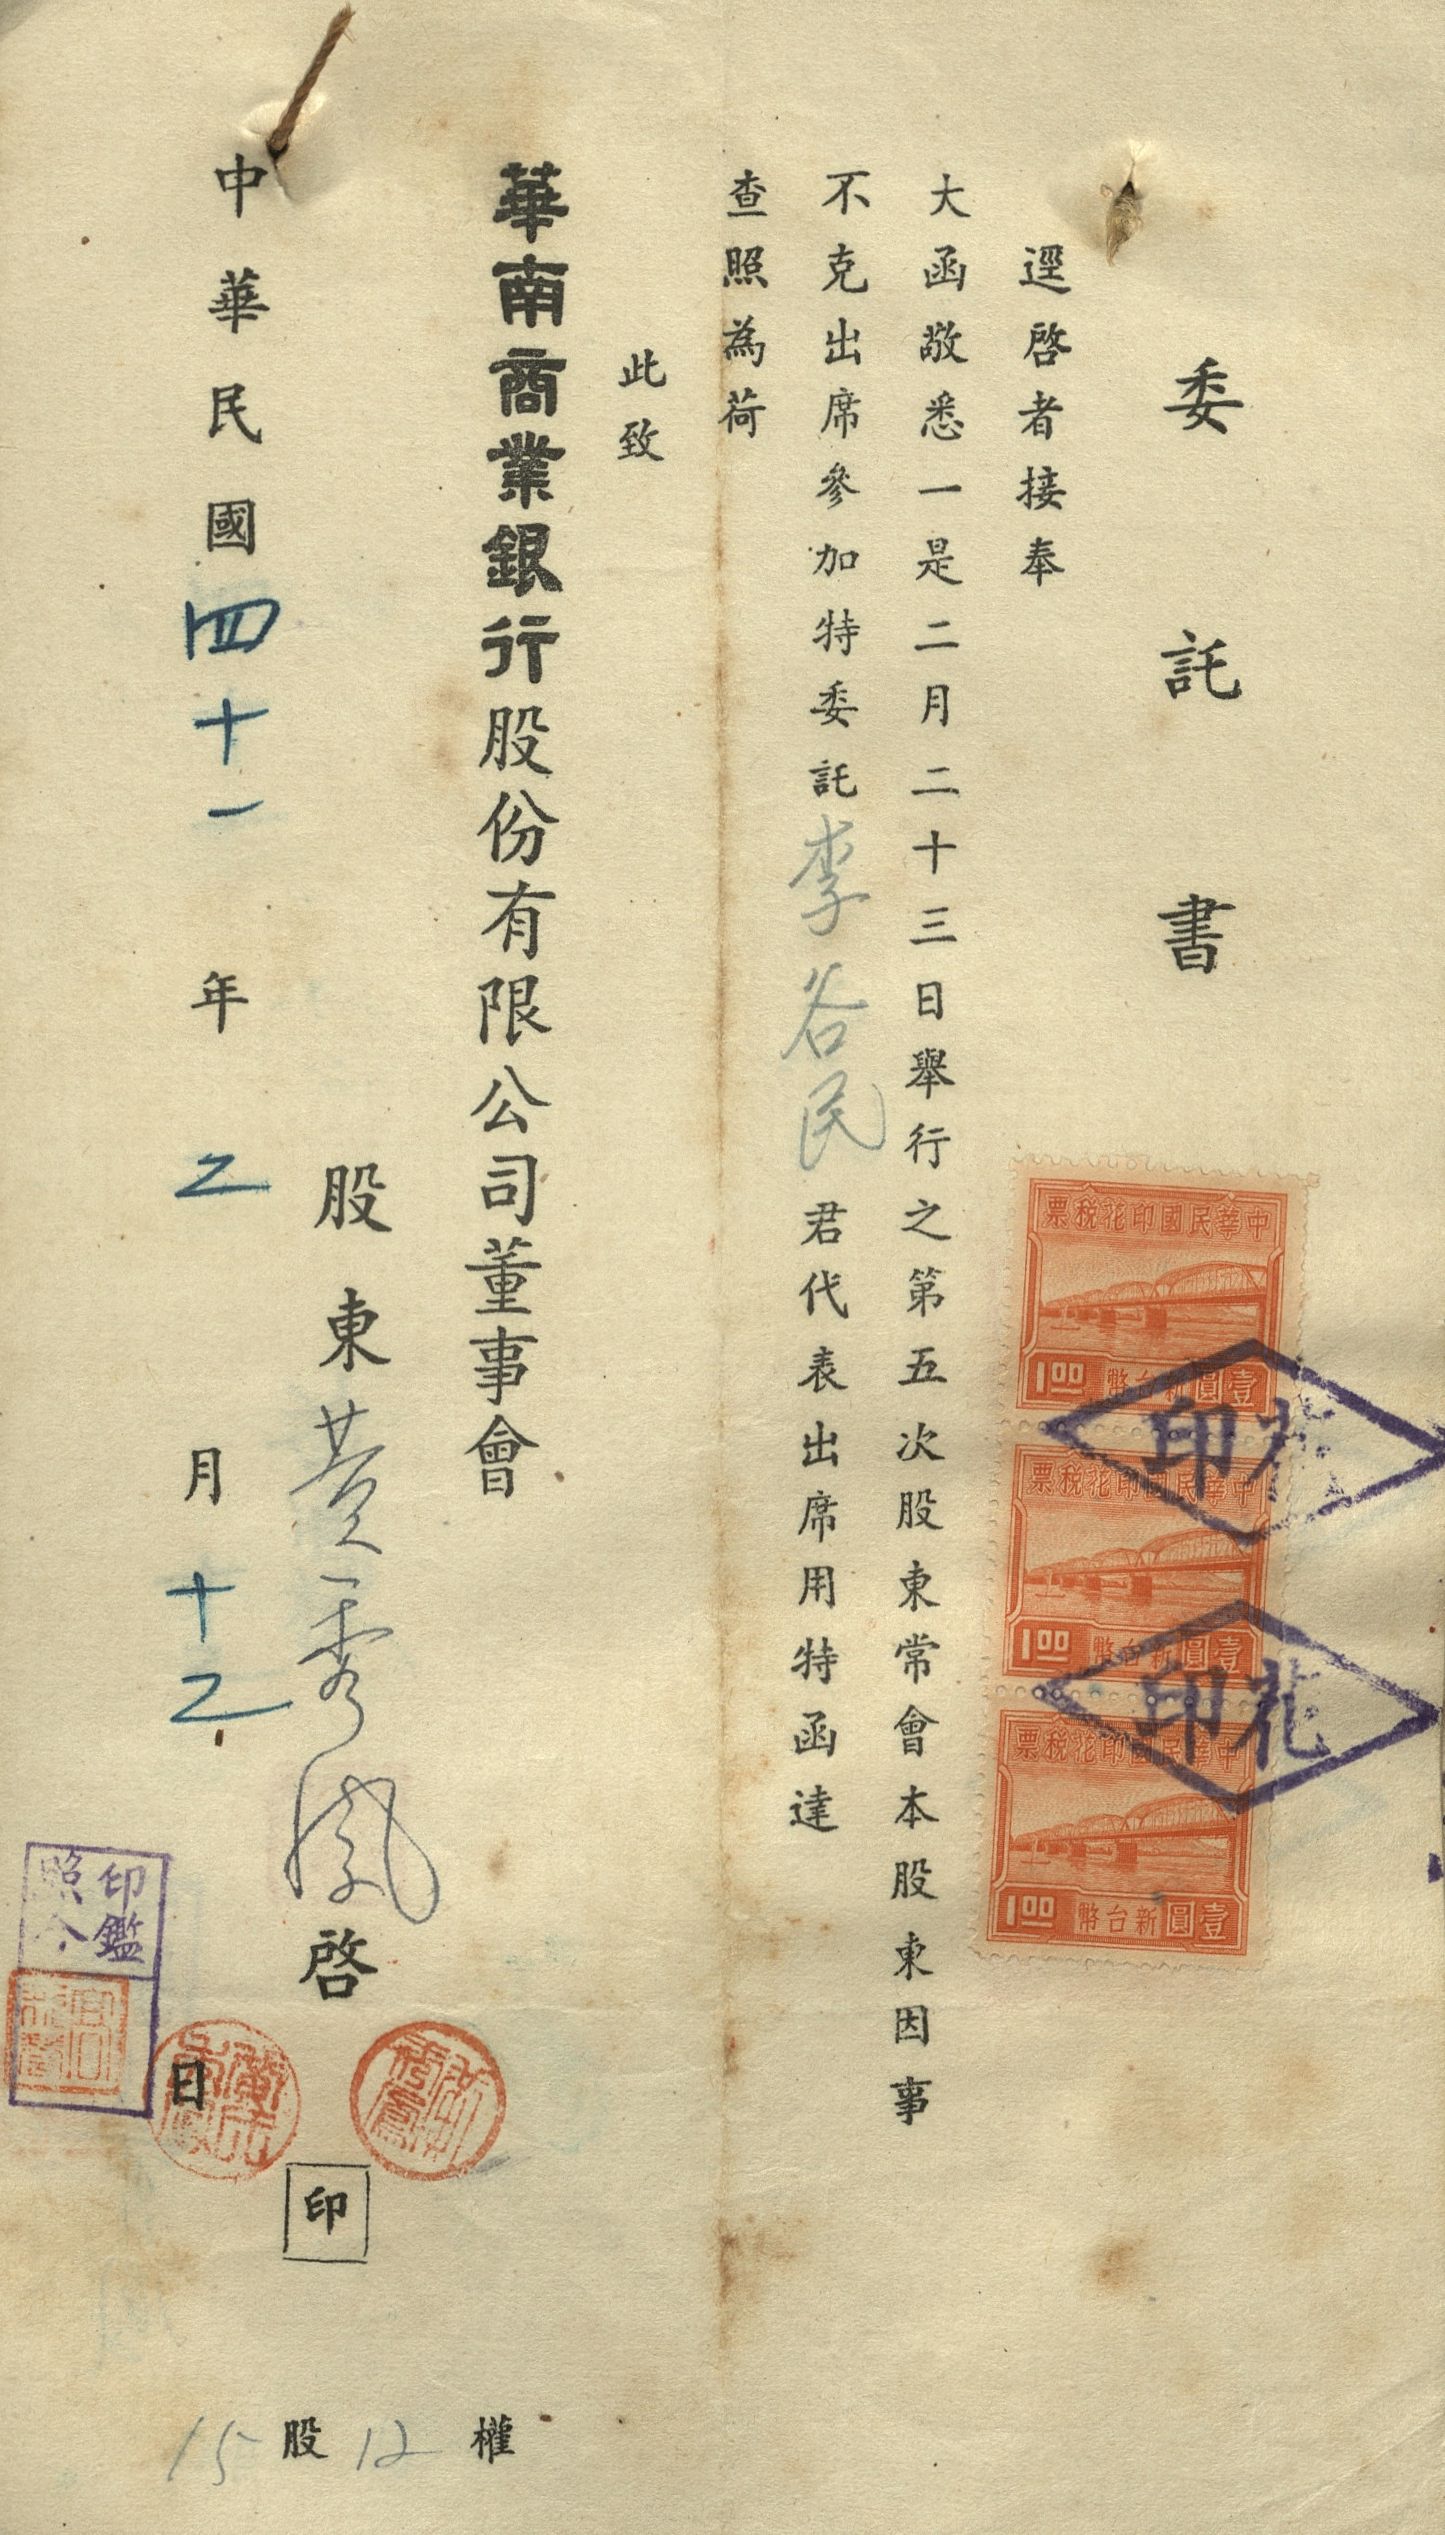 委託書
逕啓者接奉
大函敬悉一是二月二十三日舉行之第五次股東常會本股東因事
不克出席參加特委託李谷民君代表出席用特函達
查照為荷
此致
華南商業銀行股份有限公司董事會
股東黄秀鳳啓
印
中華民國四十一年二月十二日
15股12權
中華民國印花稅票
1.00 壹圓新台幣
中華民國印花稅票
1.00 壹圓新台幣
中華民國印花稅票
1.00 壹圓新台幣
花印
花印
印鑑
照合